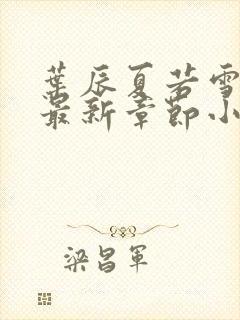 葉辰夏若雪
最新章節小
梁昌軍